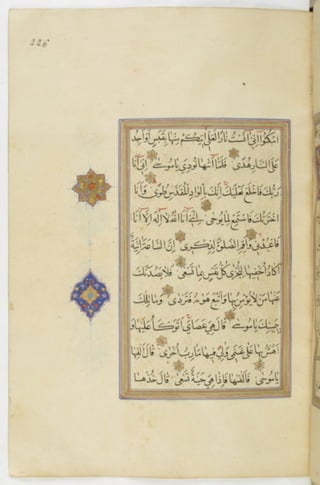 226
امكثوا اني آنست نارا لعلي آتيكم منها بقبس او اجد
على النار هدى فلما اتٰها نودي يا موسى اني انا
ربك فاخلع نعليك انك بالواد المقدس طوى وانا
اخترتك فاستمع لما يوحى انني انا الله لا اله الا انا
فاعبدني واقم الصلوة لذكرى ان الساعة اتية
اكاد اخفيها لتجزى كل نفس بما تسعى فلا يصدنك
عنها من لا يؤمن بها واتبع هويه فتردى وما تلك
بيمينك يا موسى قال هي عصاي اتوكؤا عليها و
اهش بها على غنمى ولي فيها مآرب اخرى قال القها
يا موسى فالقيها فاذا هي حية تسعى قال خذها